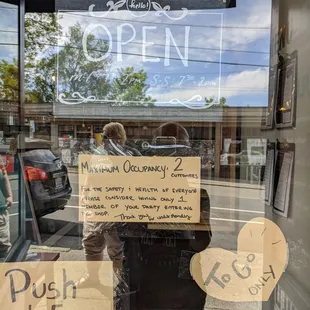 (hello!)
OPEN
Maximum Occupancy: 2
customers
For the safety + health of everyone
please consider having only 1
member of your party entering
the shop.
Thank you
Push
To Go
ONLY